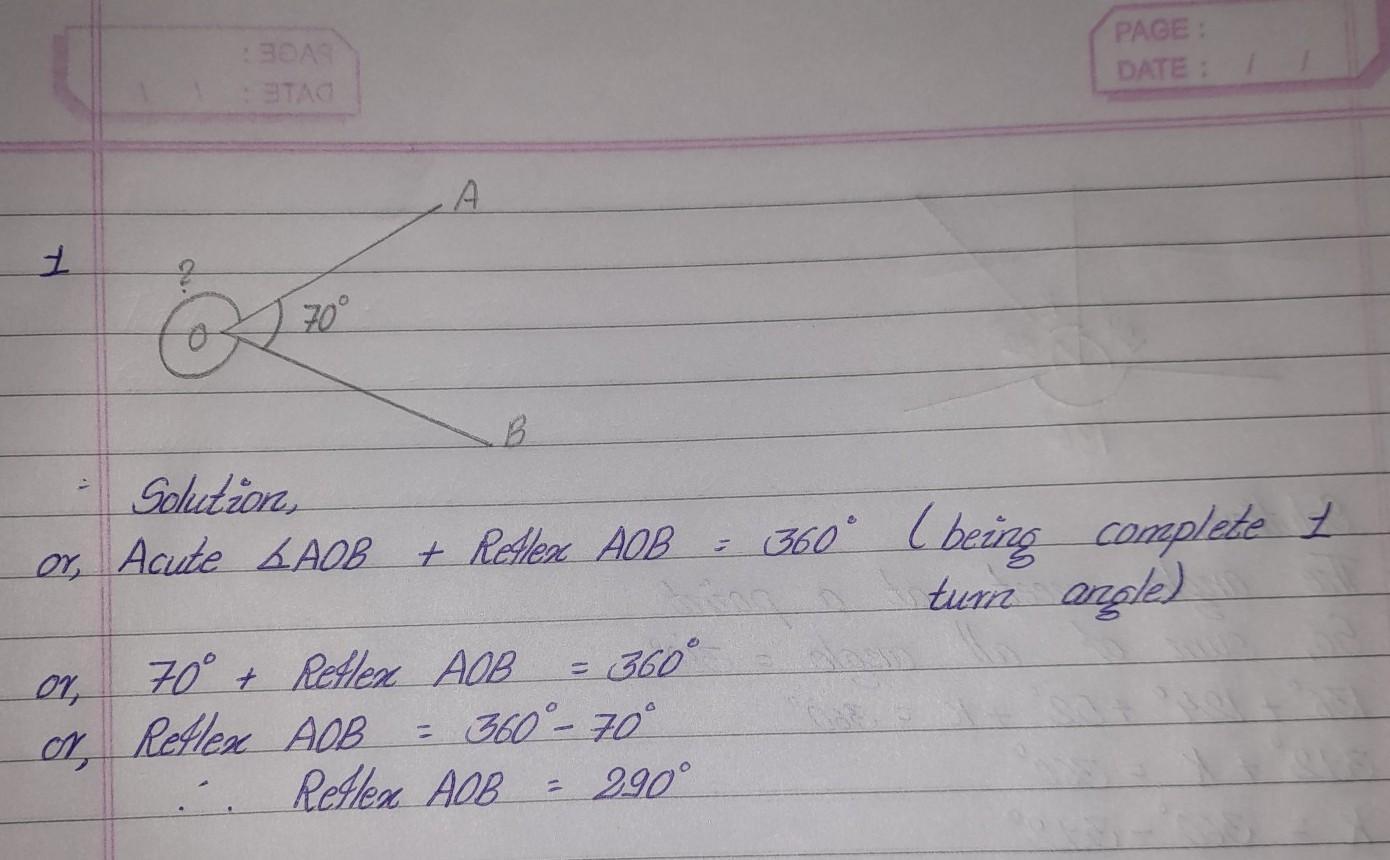 PAGE :
DATE : / /
1
A
?
O
70°
B
Solution,
or, Acute ∠AOB + Reflex AOB = 360° (being complete 1
turn angle)
or, 70° + Reflex AOB = 360°
or, Reflex AOB = 360° - 70°
∴ Reflex AOB = 290°